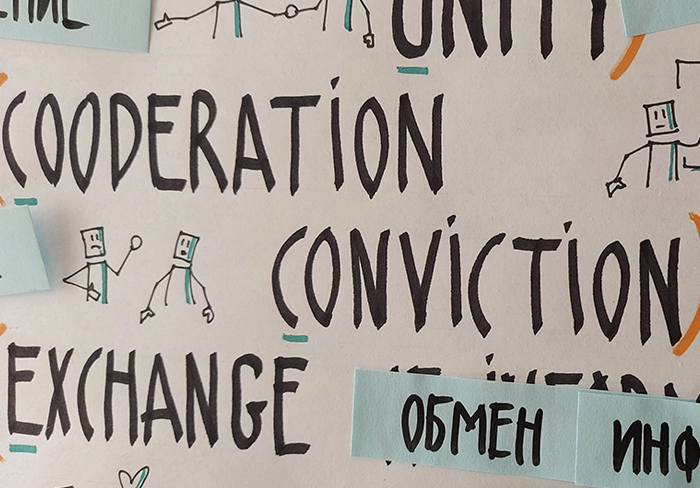 UNITY
COODERATION
CONVICTION
EXCHANGE
ОБМЕН ИНФ